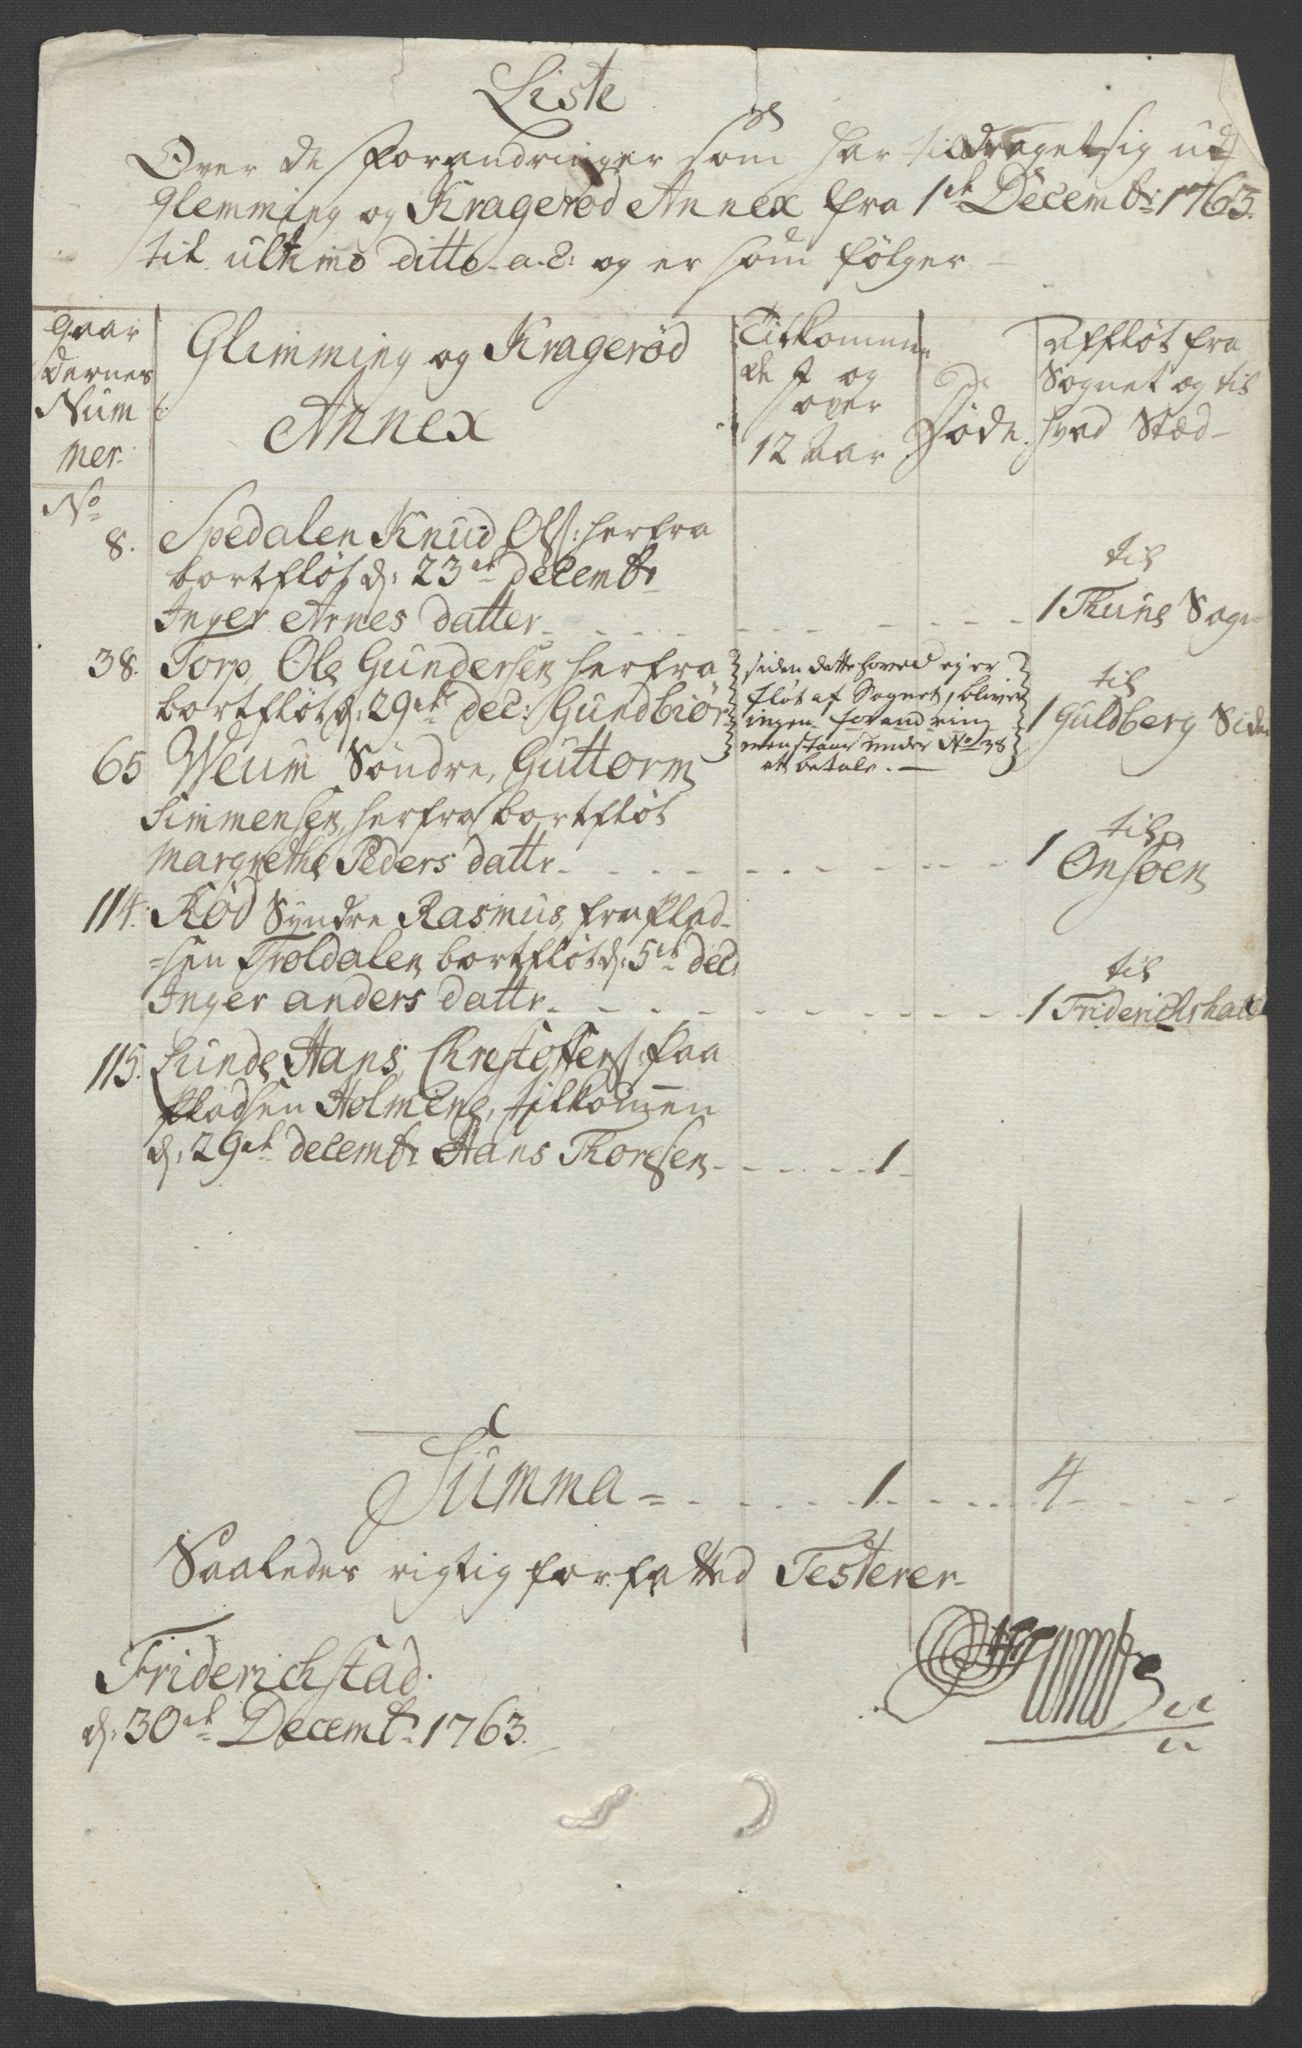 Liste
Over de forandringer som har tildraget sig udj
Glemming og Kragerød Annex fra 1te Decembr: 1763.
til ultimo ditto a.c: og er som følger
Gaar
dernes
Num
mer.
Glimming og Kragerød
Annex
Tilkommen
de og
over
12 Aar
De
Døde.
Affløt fra
Sognet og til
hvad Stæd
No
8. Spedalen Knud Ols: herfra
bortfløt d: 23de decembr
Inger Arnes datter
1 til
Thune Sogn
38. Torp, Ole Gundersen herfra
bortfløt d: 29de dec: Gundbiør
siden dette hoved ej er
fløt af Sognet, bliver
ingen forandring
men staar under No 38
at betale.
1 til
Guldberg Siden
65 Weum Søndre, Guttorm
Simmensen, herfra bortfløt
Margrethe Peders dattr
1 til
Onsøen
114. Rød Syndre Rasmus, fra Plad-
sen Troldalen bortfløt d: 5te dec
Inger anders dattr
1 til
Friderichshald
115. Lunde Hans Chrestoffers: paa
Pladsen Holmene, tilkommen
d: 29de decembr Hans Thoresen 1
Summa = 1 4
Saaledes rigtig forfatted Testerer
Friderichstad.
d: 30te Decembr 1763.